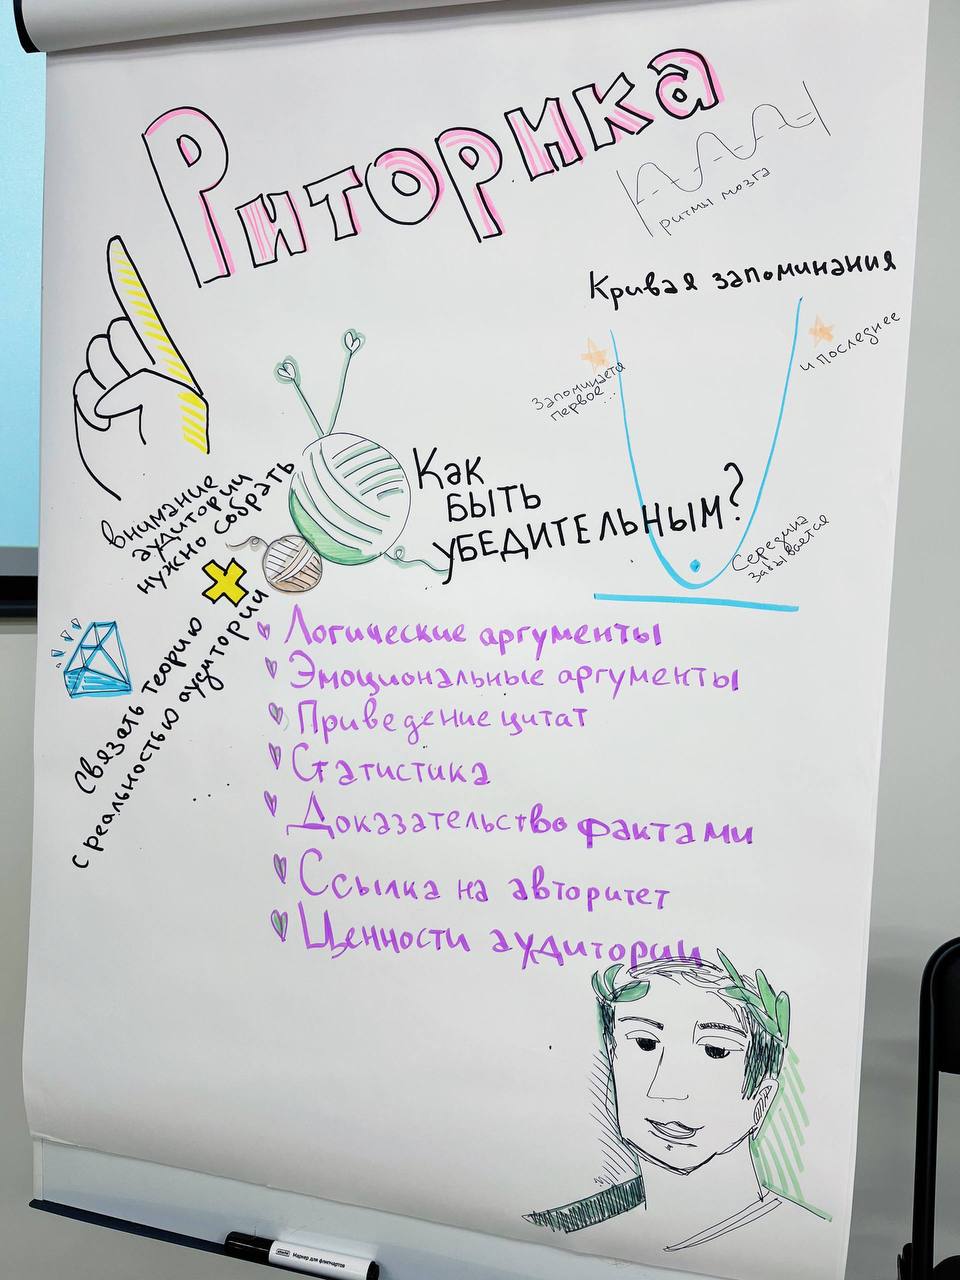 Риторика
ритмы мозга
Кривая запоминания
Запоминается
первое...
и последнее
Середина
забывается
внимание
аудитории
нужно собрать
Связать теорию
с реальностью аудитории
Как
быть
убедительным?
Логические аргументы
Эмоциональные аргументы
Приведение цитат
Статистика
Доказательство фактами
Ссылка на авторитет
Ценности аудитории
Маркер для флипчартов